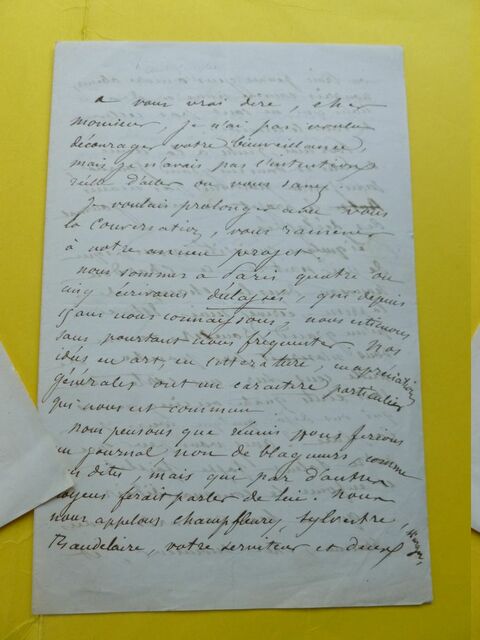 a vous vrai dire, cher
monsieur, je n'ai pas voulu
décourager votre bienveillance,
mais je n'avais pas l'intention
réelle d'aller où vous savez.
Je voulais prolonger avec vous
la conversation, vous ramener
à notre ancien projet.
nous sommes à Paris quatre ou
cinq écrivains, qui depuis
15 ans nous connaissons, nous estimons
sans pourtant nous fréquenter. Nos
idées en art, en littérature, en appréciations
générales ont un caractère particulier
qui nous est commun.
nous pensons que réunis nous ferions
un journal non de blagueurs comme
vous dites, mais qui par d'autres
moyens ferait parler de lui. nous
nous appelons champfleury, sylvestre,
Baudelaire, votre serviteur et deux